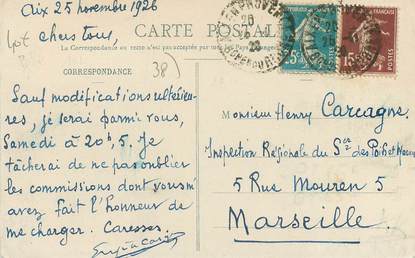 Aix 25 novembre 1926
chers tous,
CARTE POSTALE
La Correspondance au recto n'est pas acceptée par tous les Pays
CORRESPONDANCE
38
Sauf modifications ultérieu-
res, je serai parmi vous,
Samedi à 20h,5. Je
tâcherai de ne pas oublier
les commissions dont vous m'
avez fait l'honneur de
me charger. Caresses.
Monsieur Henry Carcagne,
Inspection Régionale du Sce des Poids et
5 Rue Mouren 5
Marseille.
POSTES
15c